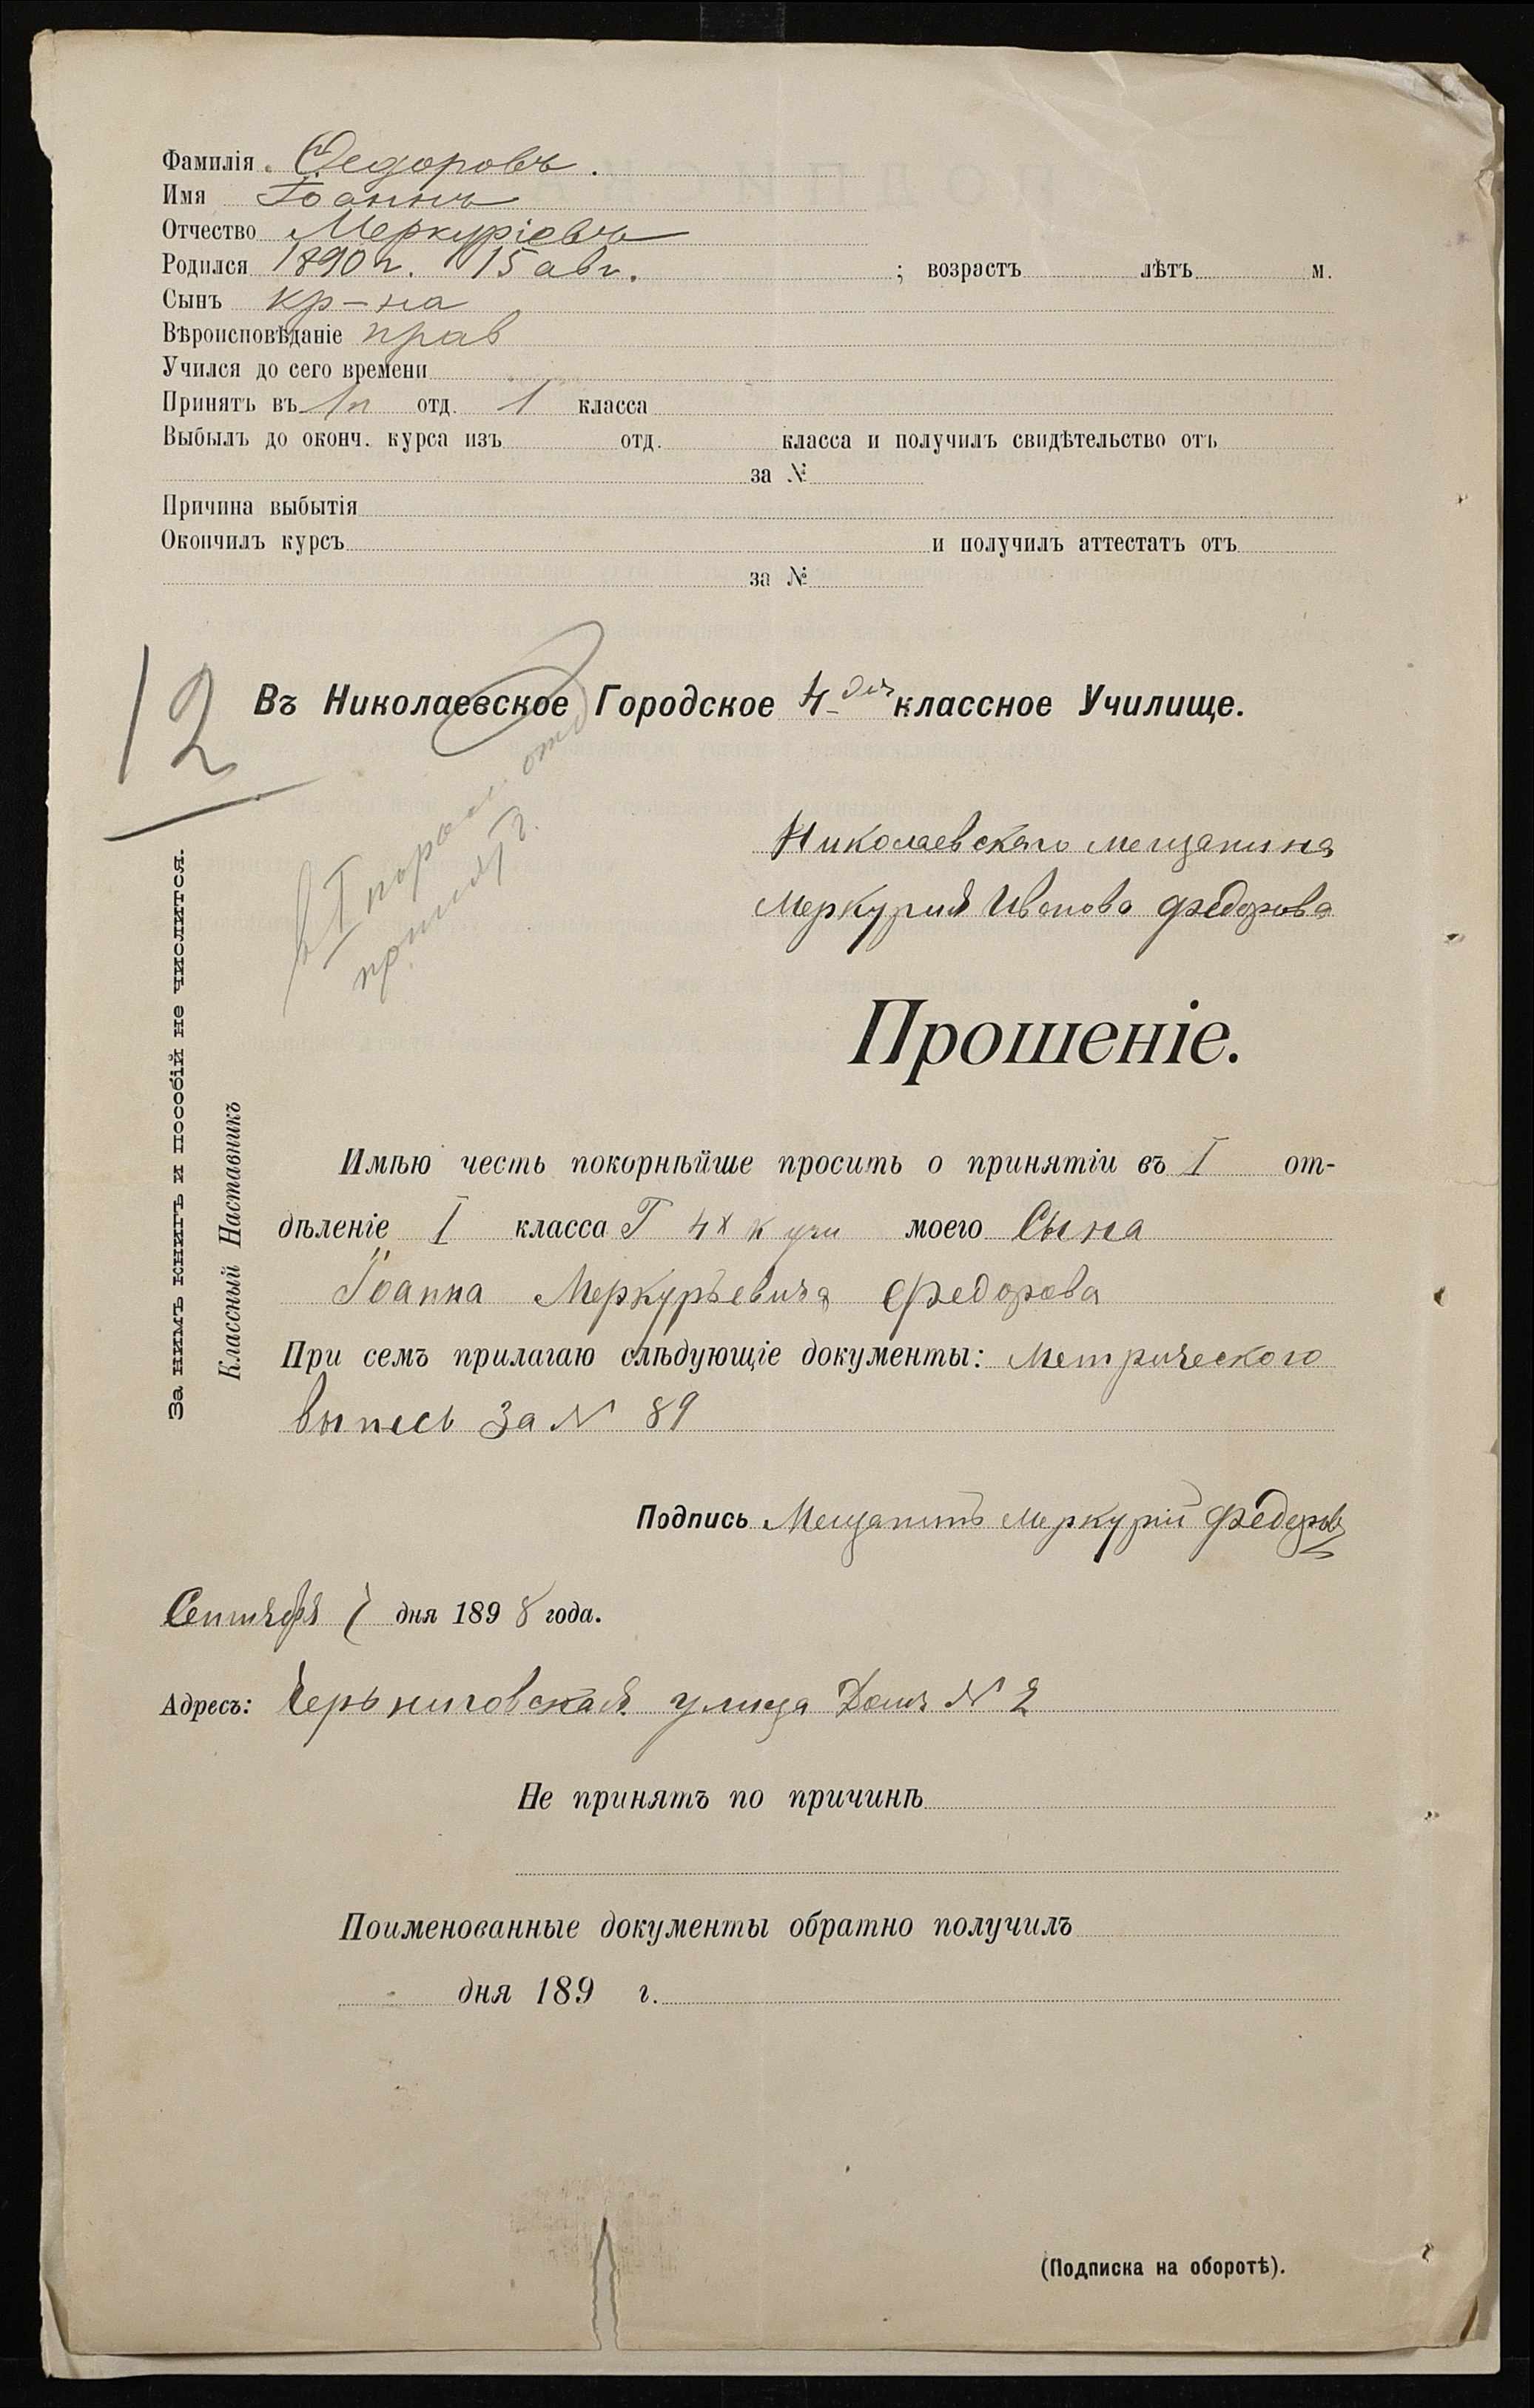 Фамилія Ѳедоровъ.
Имя Іоаннъ
Отчество Меркуріевъ
Родился 1890 г. 15 авг. ; возрастъ лѣтъ м.
Сынъ кр-на
Вѣроисповѣданіе прав
Учился до сего времени
Принятъ въ 1п отд. 1 класса
Выбылъ до оконч. курса изъ отд. класса и получилъ свидѣтельство отъ
за №
Причина выбытія
Окончилъ курсъ и получилъ аттестатъ отъ
за №
12
Въ Николаевское Городское 4-хъ классное Училище.
в I парал. отд
принят
Николаевскаго мещанина
Меркурия Иванова Федорова
Прошеніе.
Имѣю честь покорнѣйше просить о принятіи въ I от-
дѣленіе I класса Г 4х к учи моего Сына
Іоанна Меркурьевича Федорова
При семъ прилагаю слѣдующіе документы: Метрического
выпись за № 89
Подпись Мещанинъ Меркурій Федоровъ
Сентября 7 дня 1898 года.
Адресъ: Черниговская улица Домъ № 2
Не принятъ по причинѣ
Поименованные документы обратно получилъ
дня 189 г.
(Подписка на оборотѣ).
За нимъ книгъ и пособій не числится.
Классный Наставникъ